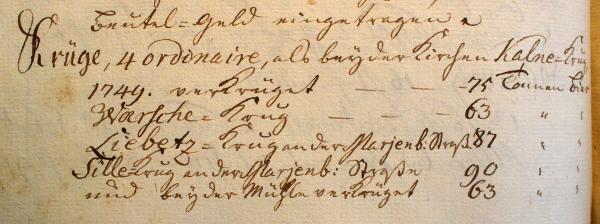 Beutel=Geld eingetragen
Krüge, 4 ordinaire, als bey der Kirchen Kalne=Krug
1749. verKrüget — — — 75 Tonnen Bier
Waersche=Krug — — — 63 " "
Liebetz=Krug an der Marjenb: Straß. 87 " "
Tille=Krug an der Marjenb: Straße 90 " "
und bey der Mühle verKrüget 63 " "